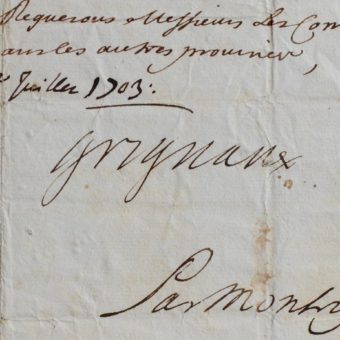 Requerons Messieurs Les Com
dans les autres provinces,
Juillet 1703.
Grignan
Par Mon